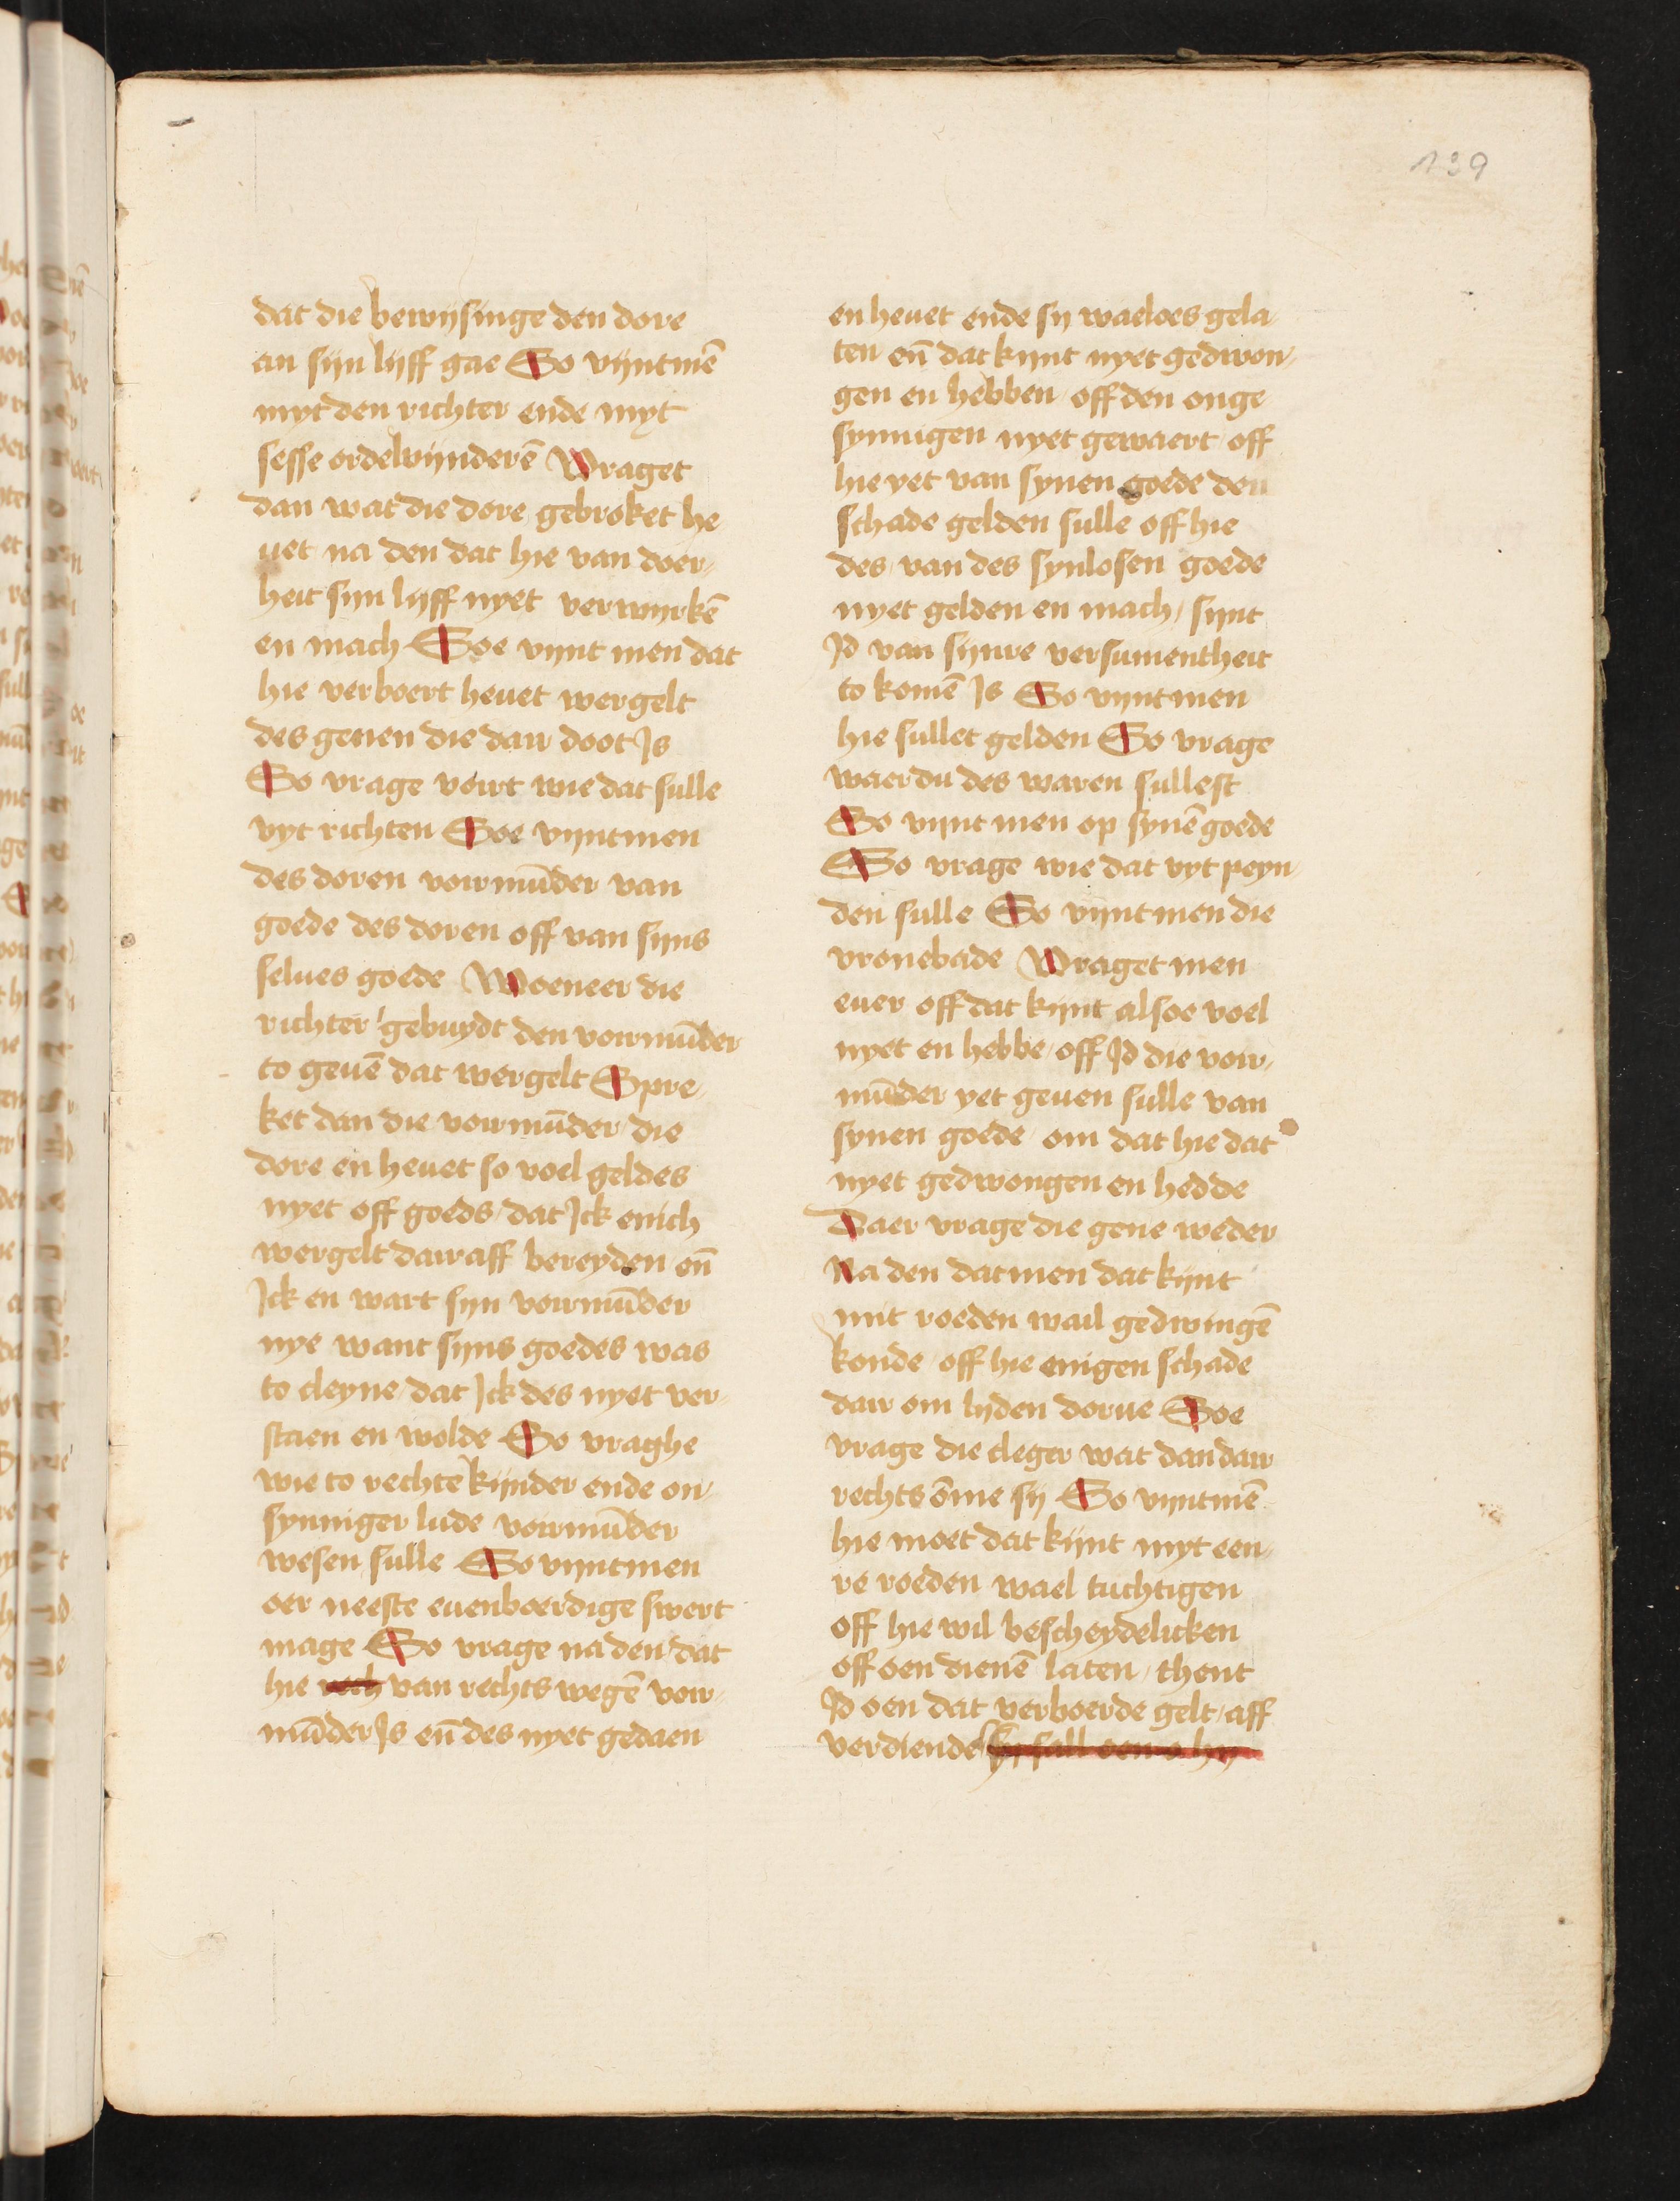 139
dat die bewijsinge den dore
an sijn lijff gae So vijntmē
myt den richter ende myt
sesse ordelvijnderē Vraget
dan wat die dore gebroket he
uet na den dat hie van doer-
heit sijn lijff nyet verwyrkē
en mach Soe vijnt men dat
hie verboert heuet wergelt
des genen die dair doot Is
So vrage voirt wie dat sulle
vyt richten Soe vijntmen
des doren voirmūder van
goede des doren off van sijns
selues goede Woeneer die
richter gebuydt den voirmūder
to geuē dat wergelt Spre-
ket dan die voirmūder die
dore en heuet so voel geldes
nyet off goeds dat Ick enich
wergelt dairaff bereyden en̄
Ick en wart syn voirmūder
nye want sijns goedes was
to cleyne dat Ick des nyet ver-
staen en wolde So vraghe
wie to rechte kijnder ende on-
synniger lude voirmūder
wesen sulle So vijntmen
oer neeste euenboerdige swert
mage So vrage na den dat
hie rech van rechts wegē voir-
mūder Is en̄ des nyet gedaen
en heuet ende sy waeloes gela
ten en̄ dat kijnt nyet gedwon-
gen en hebben off den onge
synnigen nyet gewaert off
hie yet van synen goede den
schade gelden sulle off hie
des van des synlosen goede
nyet gelden en mach sijnt
Id van sijnre versumentheit
to komē Is So vijntmen
hie sullet gelden So vrage
waer du des waren sullest
So vijnt men op synē goede
So vrage wie dat vyt peyn-
den sulle So vijntmen die
vronebade Vraget men
euer off dat kijnt alsoe voel
nyet en hebbe off Id die voir-
mūder yet geuen sulle van
synen goede om dat hie dat
nyet gedwongen en hedde
Daer vrage die gene weder
Na den datmen dat kijnt
mit roeden wail gedwingē
konde off hie enigen schade
dair om lyden dorue Soe
vrage die cleger wat dan dair
rechts ōme sij So vijntmē
hie moet dat kijnt myt een-
re roeden wael tuchtigen
off hie wil bescheydelicken
off oen dienē laten thent
Id oen dat verboerde gelt aff
verdiende